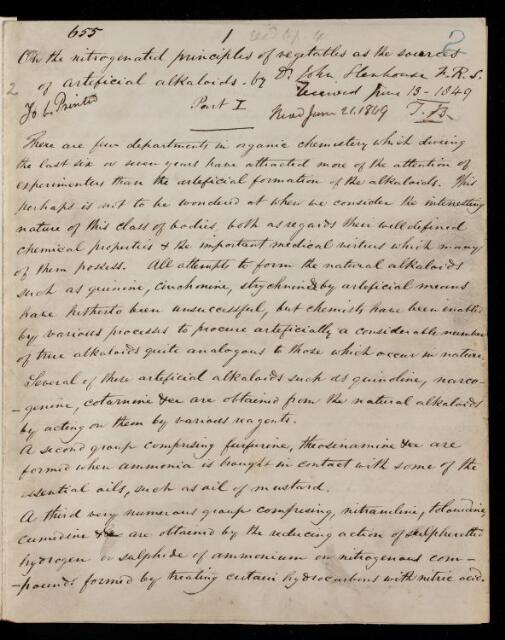 655
1
2
On the nitrogenated principles of vegetables as the sources
2
of artificial alkaloids - by Dr. John Stenhouse F.R.S.
To be Printed
Received June 13 - 1849
Part I
Read June 21. 1849
There are few departments in organic chemistry which during
the last six or seven years have attracted more of the attention of
experimenters than the artificial formation of the alkaloids. This
perhaps is not to be wondered at when we consider the interesting
nature of this class of bodies, both as regards their well defined
chemical properties & the important medical virtues which many
of them possess. All attempts to form the natural alkaloids
such as quinine, cinchonine, strychnine by artificial means
have hitherto been unsuccessful, but chemists have been enabled
by various processes to procure artificially a considerable number
of true alkaloids quite analogous to those which occur in nature.
Several of these artificial alkaloids such as quinoline, narco-
-genine, cotarnine &c are obtained from the natural alkaloids
by acting on them by various reagents.
A second group comprising furfurine, thiosinamine &c are
formed when ammonia is brought in contact with some of the
essential oils, such as oil of mustard.
A third very numerous group comprising, nitraniline, toluidine,
cumidine &c are obtained by the reducing action of sulphuretted
hydrogen or sulphide of ammonium on nitrogenous com-
-pounds formed by treating certain hydrocarbons with nitric acid.